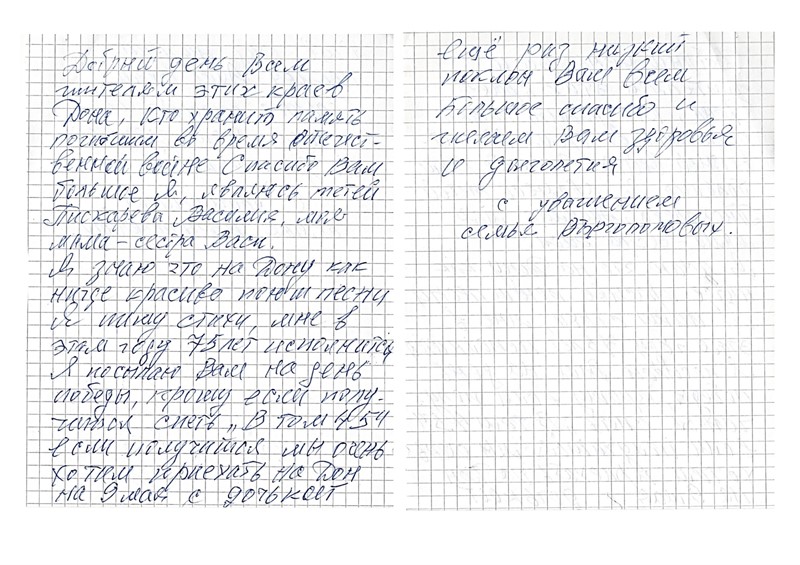 Добрый день Вам
жителям этих краев
Дона, кто хранит память
погибшим во время Отечест-
венной войне Спасибо Вам
большое Я, являюсь тетей
Пискарева Василия, моя
мама - сестра Васи.
Я знаю что на Дону как
нигде красиво поют песни
Я пишу стихи, мне в
этом году 75 лет исполнится
Я посылаю Вам на день
победы, прошу если полу-
чится спеть „В том
если получится мы очень
хотим приехать на Дон
на 9 мая с дочькой
ещё раз низкий
поклон Вам всем
Большое спасибо и
желаем Вам здоровья
и долголетия
с уважением
семья